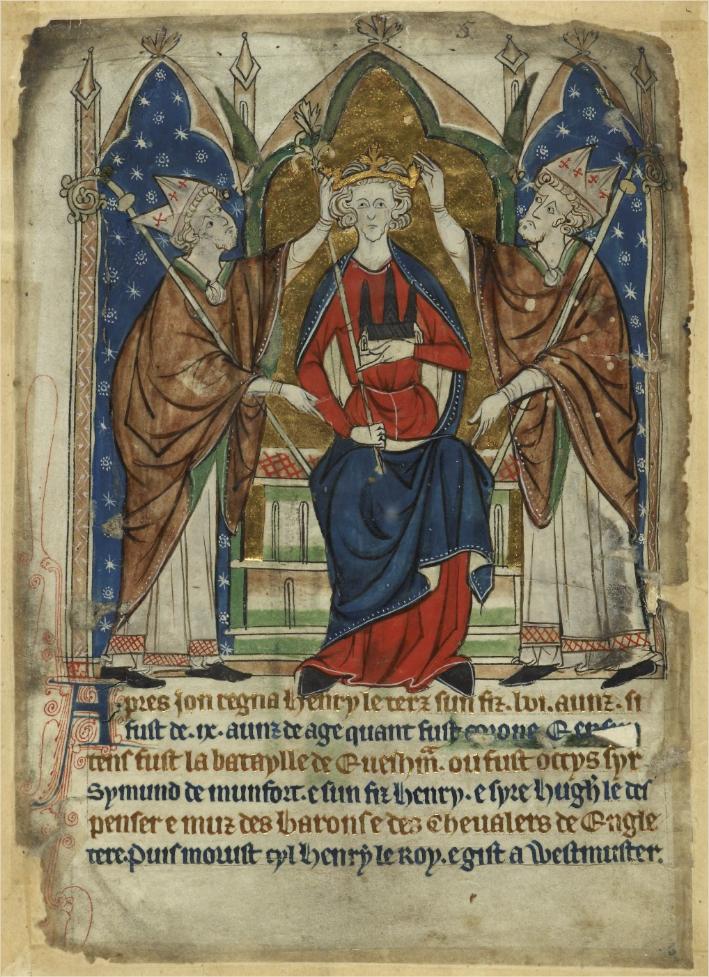 5
Apres Jon regna Henry le terz sun fiz. lvi. aunz. si
fust de. ix. aunz de age quant fust corone E en
tens fust la bataylle de Euesh̄m. ou fust occys syr
Symund de munfort. e sun fiz Henry. e syre Hugh le des
penser e muz des barons e des Chevalers de Engle
tere. Puis morust cyl Henry le Roy. e gist a Westmuster.